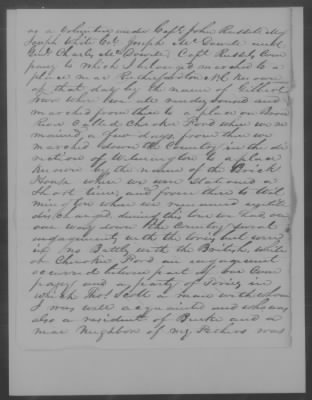 as a Volunteer under Capt. John Russell Maj
Joseph White Col. Joseph McDowell and
Genl. Charles McDowell Capt. Russells Com
pany to which I belonged marched to a
place near Rutherfordton N.C. known
at that day by the name of Gilbert
Town when we all rendezvoused and
marched from there to a place on Broad
River Called Cherokee Ford where we re
mained a few days, from there we
marched down the Country in the di
rection of Wilmington to a place
known by the name of the Brick
House where we were Stationed a
Short time, and from there to Wil
mington where we remained untill
discharged, during this tour we had on
our way down the Country several
engagements with the tories but
no Battle with the British, while
at Cherokee Ford an engagement
occurred between part of our Com
pany and a party of Tories in
which Thos. Scott a man with whom
I was well acquainted and who was
also a resident of Burke and a
near Neighbor of my Fathers was